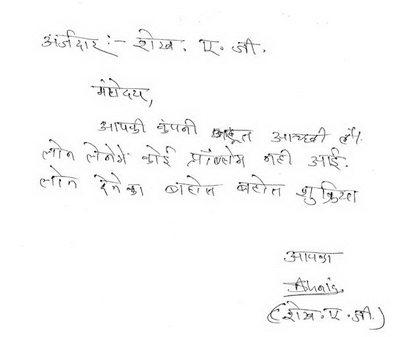 अर्जदार :- शेख. ए. जी.
महोदय,
आपकी कंपनी बहूत आच्छी है।
लोन लेनेमे कोई प्रॉब्लेम नही आई.
लोन देनेका बाहोत बाहोत शुक्रिया
आपका
(शेख. ए. जी.)